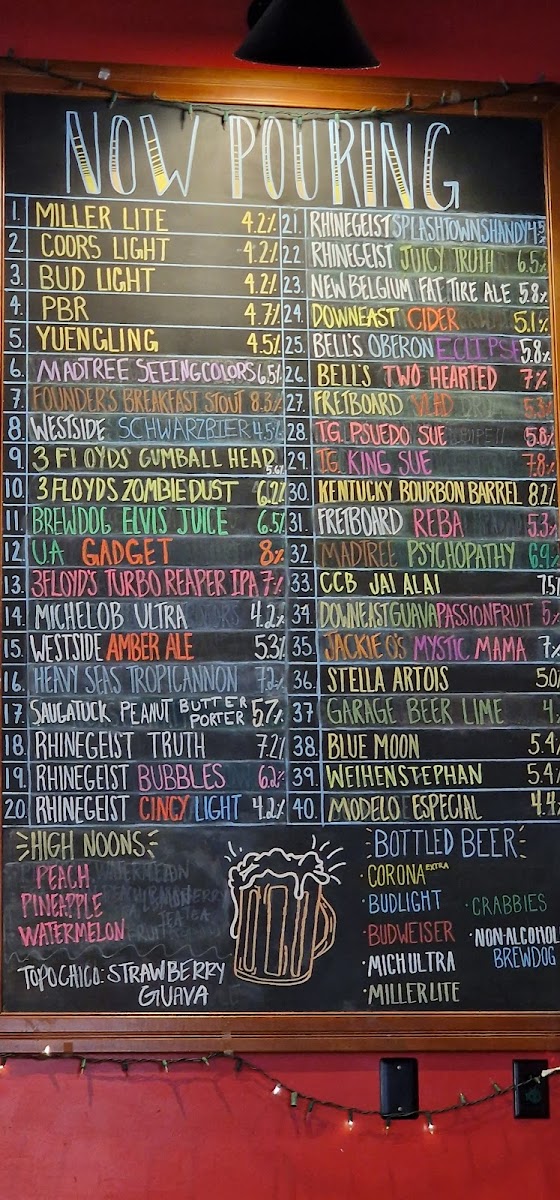 NOW POURING
1. MILLER LITE 4.2%
2. COORS LIGHT 4.2%
3. BUD LIGHT 4.2%
4. PBR 4.7%
5. YUENGLING 4.5%
6. MADTREE SEEING COLORS 6.5%
7. FOUNDER'S BREAKFAST STOUT 8.3%
8. WESTSIDE SCHWARZBIER 4.5%
9. 3 FLOYDS GUMBALL HEAD 5.6%
10. 3 FLOYDS ZOMBIE DUST 6.2%
11. BREWDOG ELVIS JUICE 6.5%
12. UA GADGET 8%
13. 3FLOYD'S TURBO REAPER IPA 7%
14. MICHELOB ULTRA 4.2%
15. WESTSIDE AMBER ALE 5.3%
16. HEAVY SEAS TROPICANNON 7.2%
17. SAUGATUCK PEANUT BUTTER PORTER 5.7%
18. RHINEGEIST TRUTH 7.2%
19. RHINEGEIST BUBBLES 6.2%
20. RHINEGEIST CINCY LIGHT 4.2%
21. RHINEGEIST SPLASHTOWN SHANDY
22. RHINEGEIST JUICY TRUTH 6.5%
23. NEW BELGIUM FAT TIRE ALE 5.8%
24. DOWNEAST CIDER 5.1%
25. BELL'S OBERON ECLIPSE 5.8%
26. BELL'S TWO HEARTED 7%
27. FRETBOARD VLAD
28. T.G. PSUEDO SUE 5.8%
29. T.G. KING SUE 7.8%
30. KENTUCKY BOURBON BARREL 8.2%
31. FRETBOARD REBA 5.3%
32. MADTREE PSYCHOPATHY 6.9%
33. CCB JAI ALAI 7.5%
34. DOWNEAST GUAVA PASSIONFRUIT 5%
35. JACKIE O'S MYSTIC MAMA 7%
36. STELLA ARTOIS 5.0
37. GARAGE BEER LIME 4.
38. BLUE MOON 5.4%
39. WEIHENSTEPHAN 5.4%
40. MODELO ESPECIAL 4.4%
HIGH NOONS
PEACH
PINEAPPLE
WATERMELON
TOPOCHICO: STRAWBERRY
GUAVA
BOTTLED BEER
· CORONA EXTRA
· BUDLIGHT
· BUDWEISER
· MICH ULTRA
· MILLER LITE
· CRABBIES
· NON-ALCOHOL
BREWDOG